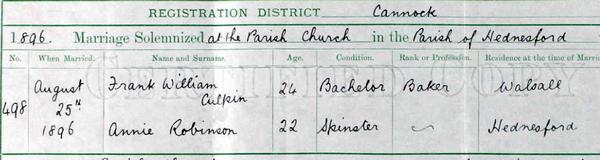 REGISTRATION DISTRICT Cannock
1896. Marriage Solemnized at the Parish Church in the Parish of Hednesford
No. When Married. Name and Surname. Age. Condition. Rank or Profession. Residence at the time of Marri
CERTIFIED COPY
498 August 25th 1896
Frank William Culpin 24 Bachelor Baker Walsall
Annie Robinson 22 Spinster Hednesford